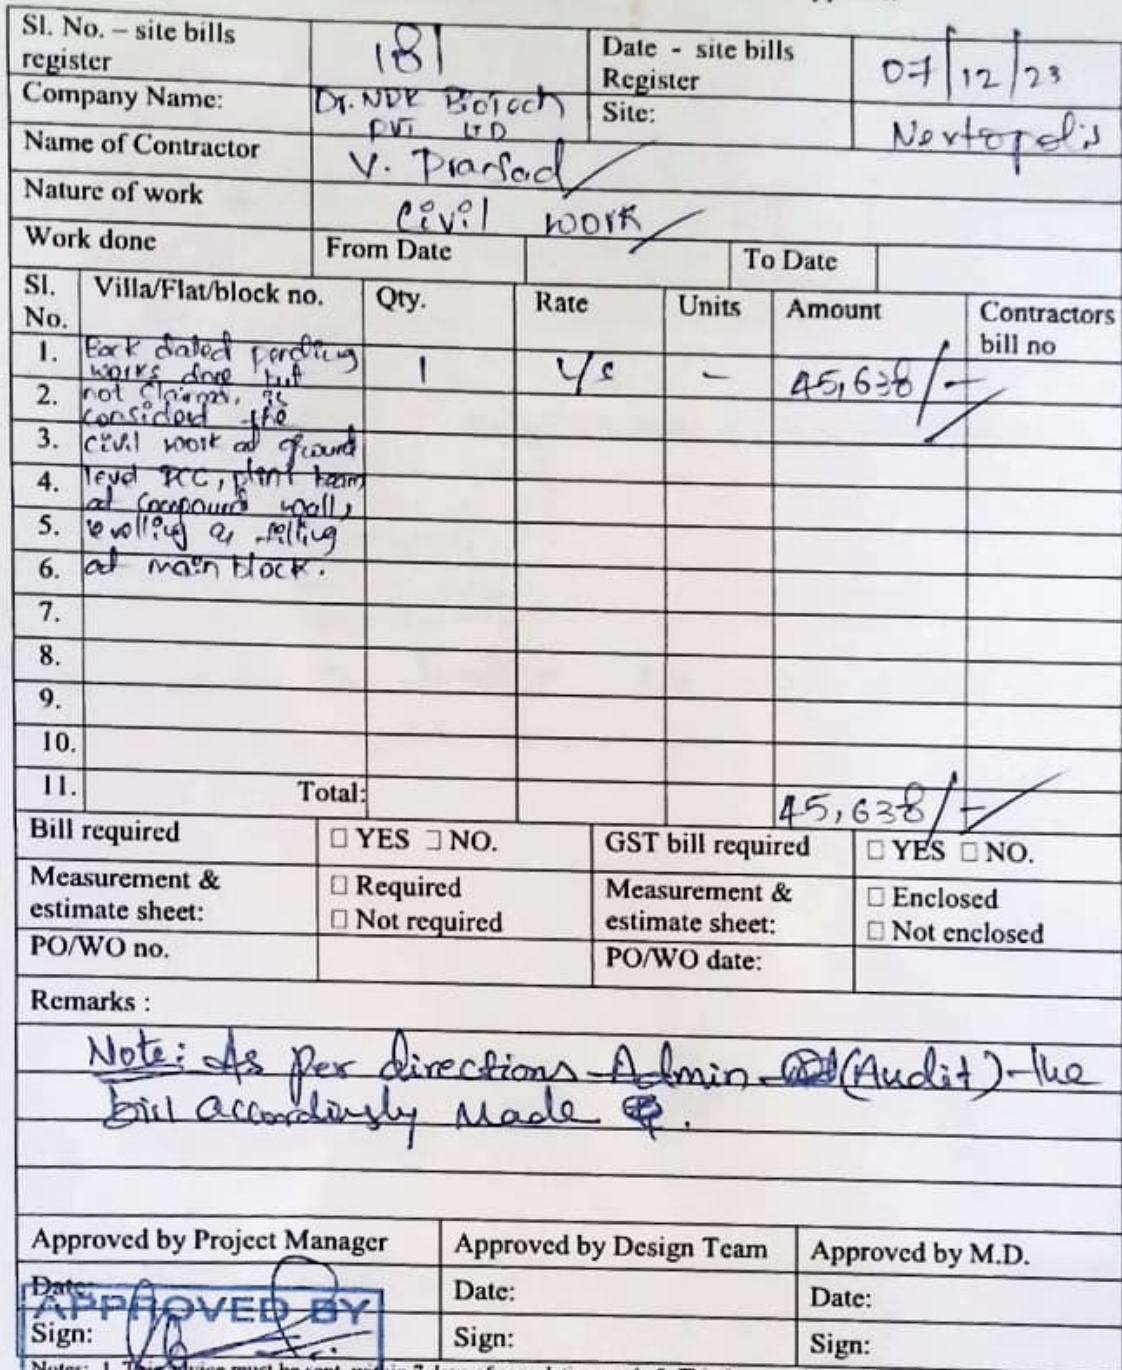 Sl. No. – site bills register 181 Date - site bills Register 07/12/23
Company Name: Dr. NDR BioTech PVT LTD Site: Nextopolis
Name of Contractor V. Prasad
Nature of work Civil work
Work done From Date To Date
Sl. No. Villa/Flat/block no. Qty. Rate Units Amount Contractors bill no
1. Back dated pending 1 L/S - 45,638/-
works done but
2. not Claims, is
considerd the
3. civil work at ground
4. level PCC, plint beam
at compound wall,
5. levelling & filling
6. at main block.
7.
8.
9.
10.
11. Total: 45,638/-
Bill required □ YES □ NO. GST bill required □ YES □ NO.
Measurement & estimate sheet: □ Required □ Not required Measurement & estimate sheet: □ Enclosed □ Not enclosed
PO/WO no. PO/WO date:
Remarks :
Note: As per directions Admin (Audit) the
bill accordingly Made.
Approved by Project Manager Approved by Design Team Approved by M.D.
Date: Date: Date:
APPROVED BY
Sign: Sign: Sign: